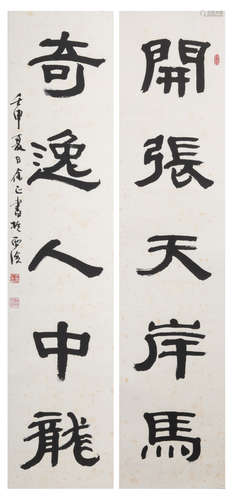 開張天岸馬
奇逸人中龍
壬申夏日徐正書於西泠